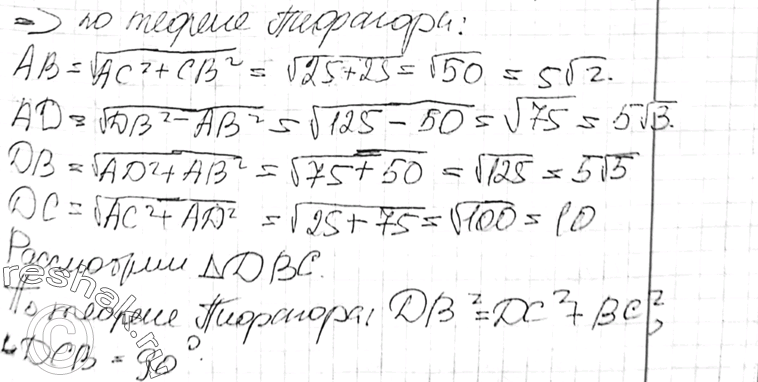 => по теореме Пифагора:
AB = √AC²+CB² = √25+25 = √50 = 5√2.
AD = √DB²-AB² = √125-50 = √75 = 5√3.
DB = √AD²+AB² = √75+50 = √125 = 5√5
DC = √AC²+AD² = √25+75 = √100 = 10
Рассмотрим △DBC.
По теореме Пифагора: DB² = DC² + BC²,
∠DCB = 90°.
©reshak.ru